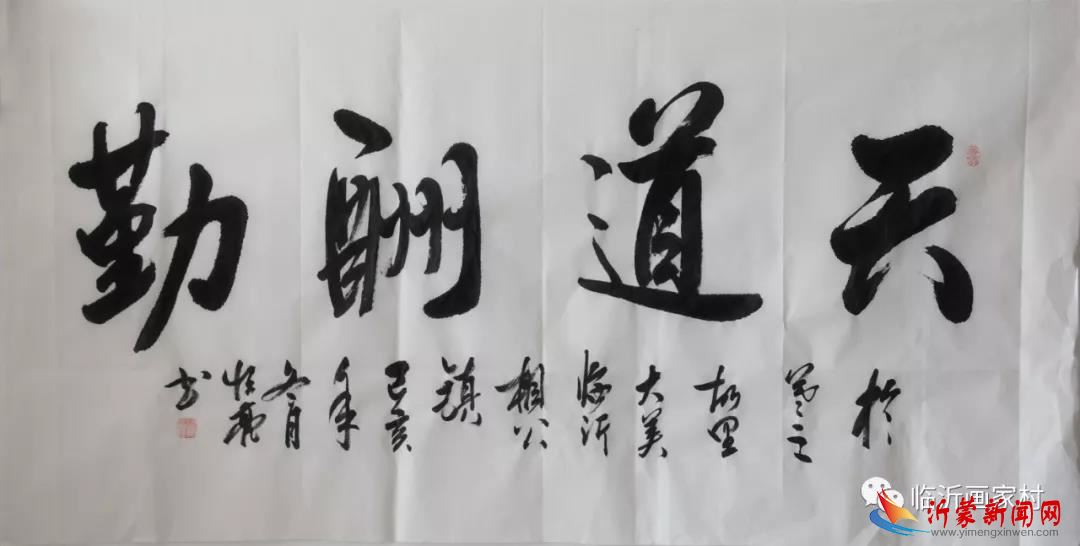 天道酬勤
於羲之故里大美临沂相公镇己亥年冬月书
临沂画家村
沂蒙新闻网
www.yimengxinwen.com